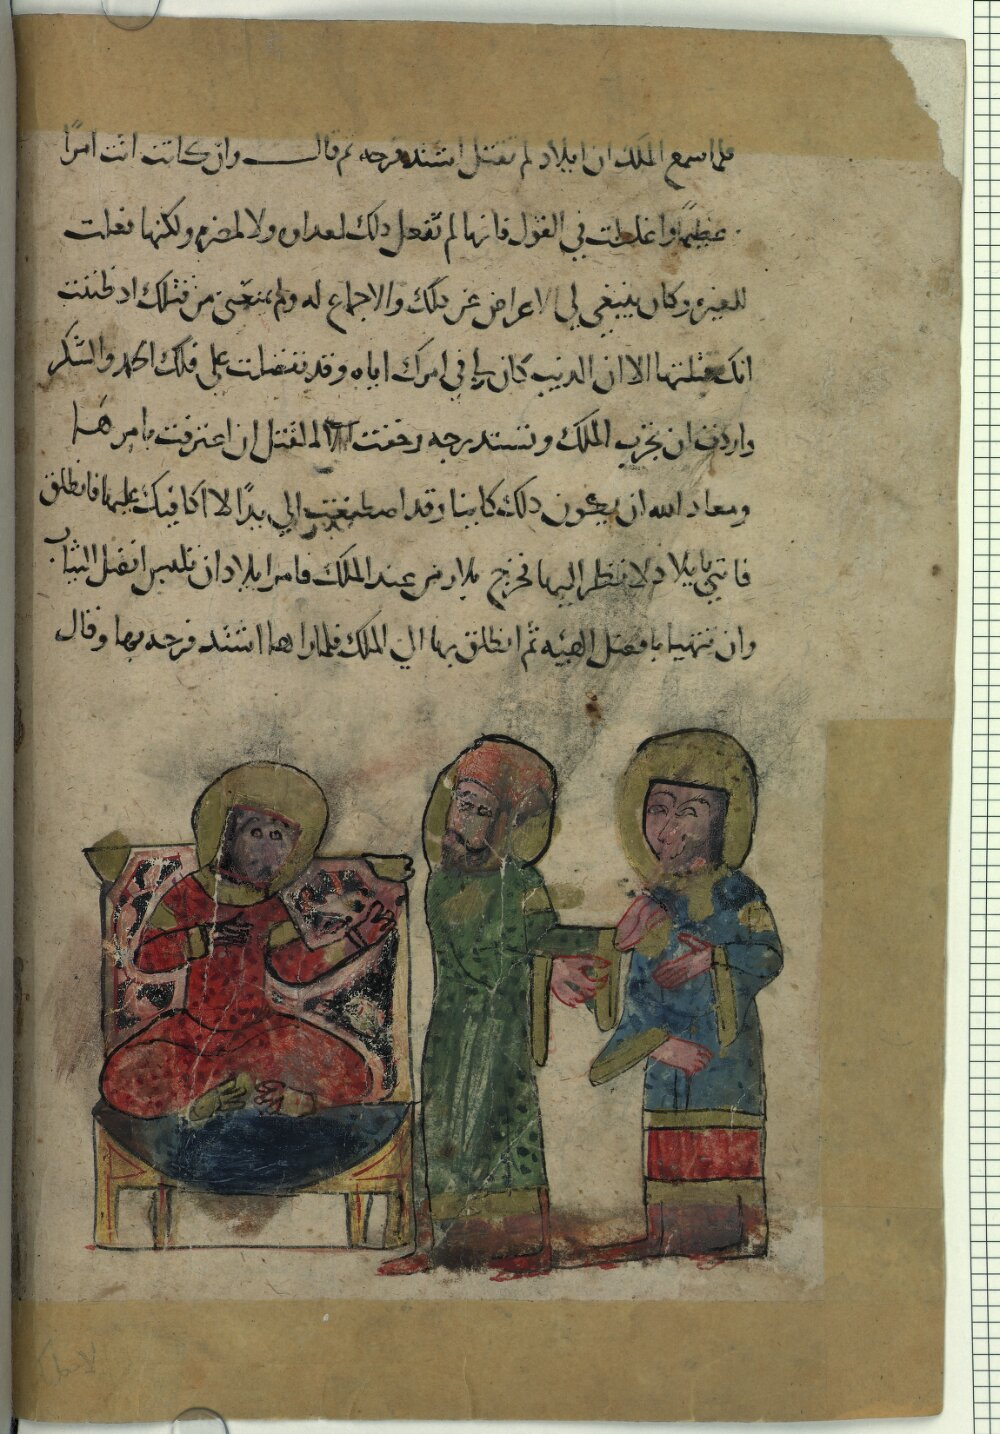 فلما سمع الملك ان ايلاد لم تقتل اشتد فرحه ثم قال وان كانت اتت امرًا
عظيمًا واغلطت في القول فانها لم تفعل دلك لعداوه ولا لمضره ولكنها فعلت
للغيره وكان ينبغي لي الاعراض عن دلك والاحتمال له ولم يمنعني من قتلك اد ظننت
انك قتلتها الا ان الدنب كان لي في امرك اياه وقد تفضلت علي فلك الحمد والشكر
واردت ان تجرب الملك وتستد رجه وخفت القتل ان اعترفت بامرها
ومعاد الله ان يكون دلك كاينا وقد اصطنعت الي يدًا لا اكافيك عليها فانطلق
فاتني بايلاد لانظر اليها فخرج بلار من عند الملك فامر ايلاد ان تلبس افضل الثياب
وان تتهيا بافضل الهيئه ثم انطلق بها الي الملك فلما راها اشتد فرحه بها وقال